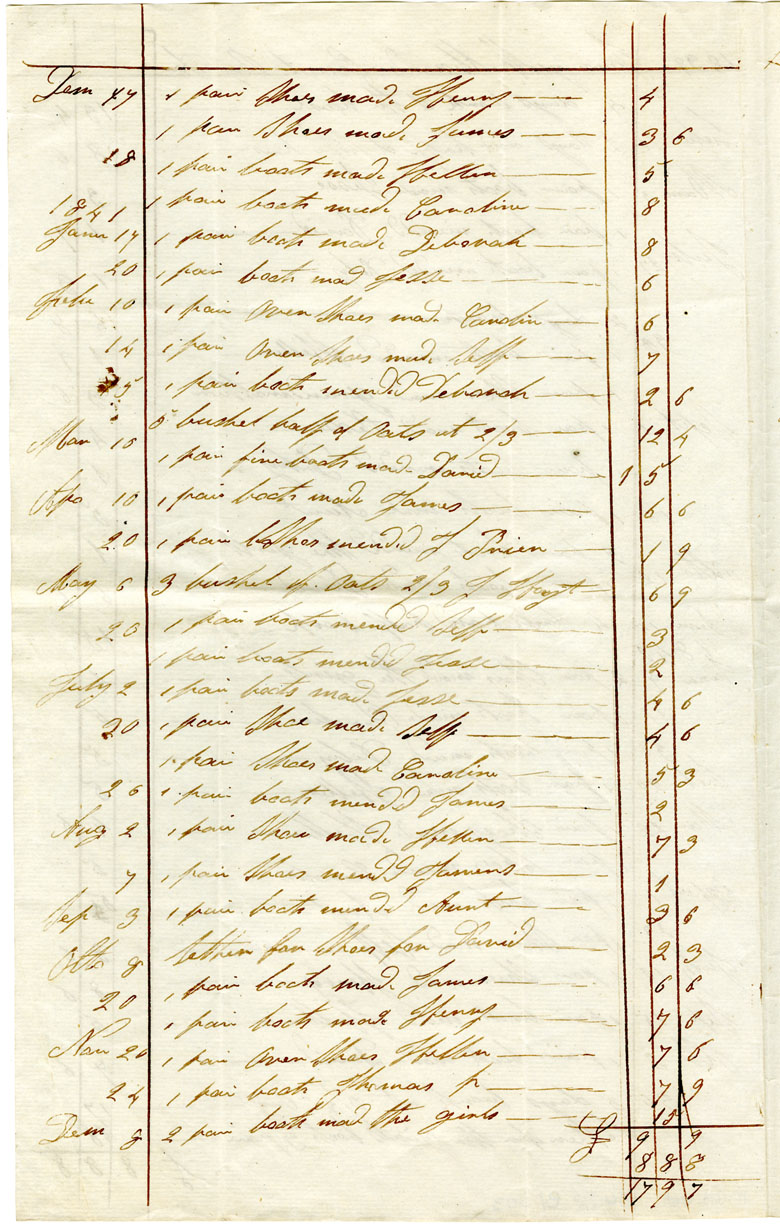 Dem 17 1 pair Shoes made Henry 4
1 pair Shoes made James 3 6
18 1 pair boots made Hellen 5
1841 1 pair boots made Caroline 8
Janu 17 1 pair boots made Deborah 8
20 1 pair boots mad Jesse 6
Febu 10 1 pair over Shoes made Carolin 6
14 1 pair over Shoes made Self 7
5 1 pair boots mended Deborah 2 6
5 bushel half of Oats at 2/3 12 4
Mar 15 1 pair fine boots made David 1 5
Apo 10 1 pair boots made James 6 6
20 1 pair Shoes mended J Brien 1 9
May 6 3 bushel of Oats 2/3 J 6 9
20 1 pair boots mended Self 3
1 pair boots mended Jesse 2
July 2 1 pair boots made Jesse 4 6
20 1 pair Shoe made Self 4 6
1 pair Shoes made Caroline 5 3
26 1 pair boots mended James 2
Aug 2 1 pair Shoes made Hellen 7 3
7 1 pair Shoes mended Jamens 1
Sep 3 1 pair boots mended Aunt 3 6
Octo 8 lether for Shoes for David 2 3
1 pair boots made James 6 6
20 1 pair boots made Henry 7 6
Nov 20 1 pair over Shoes Hellen 7 6
24 1 pair boots Thomas Jr 7 9
Dem 8 2 pair boots mad the girls 15
£ 9 9
8 8 8
17 9 7